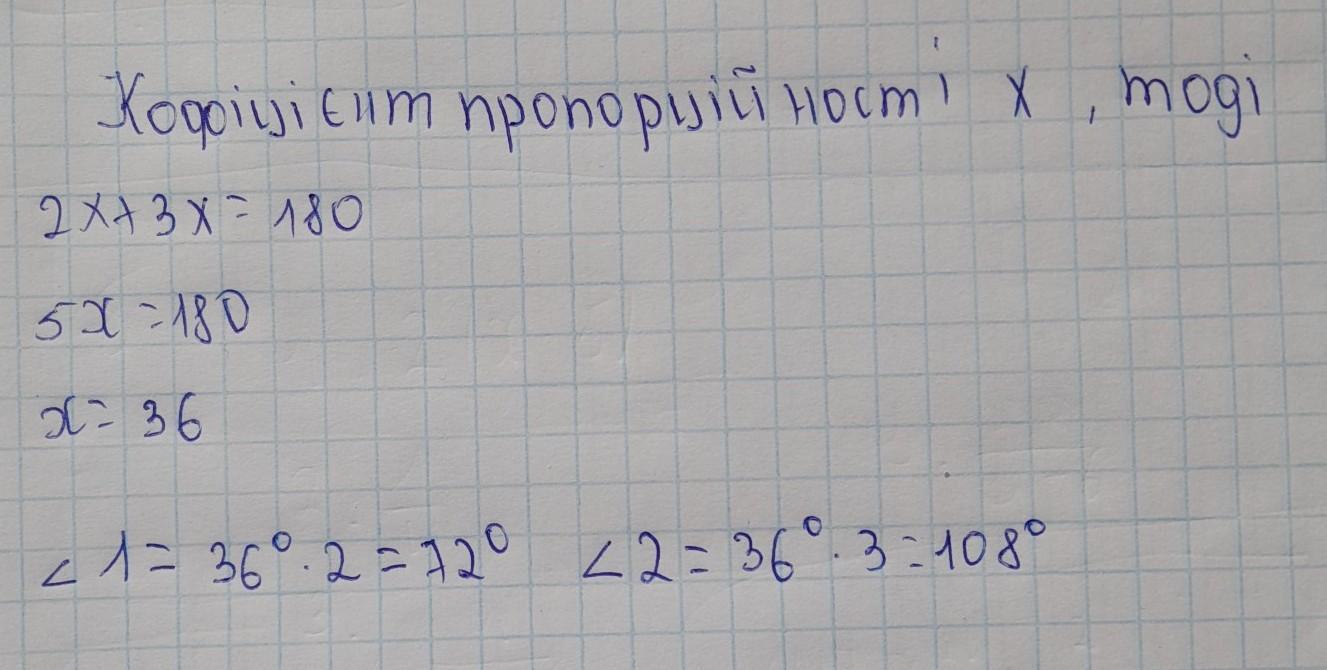 Кофіцієнт пропорційності x, тоді
2x+3x=180
5x=180
x=36
∠1=36°·2=72° ∠2=36°·3=108°